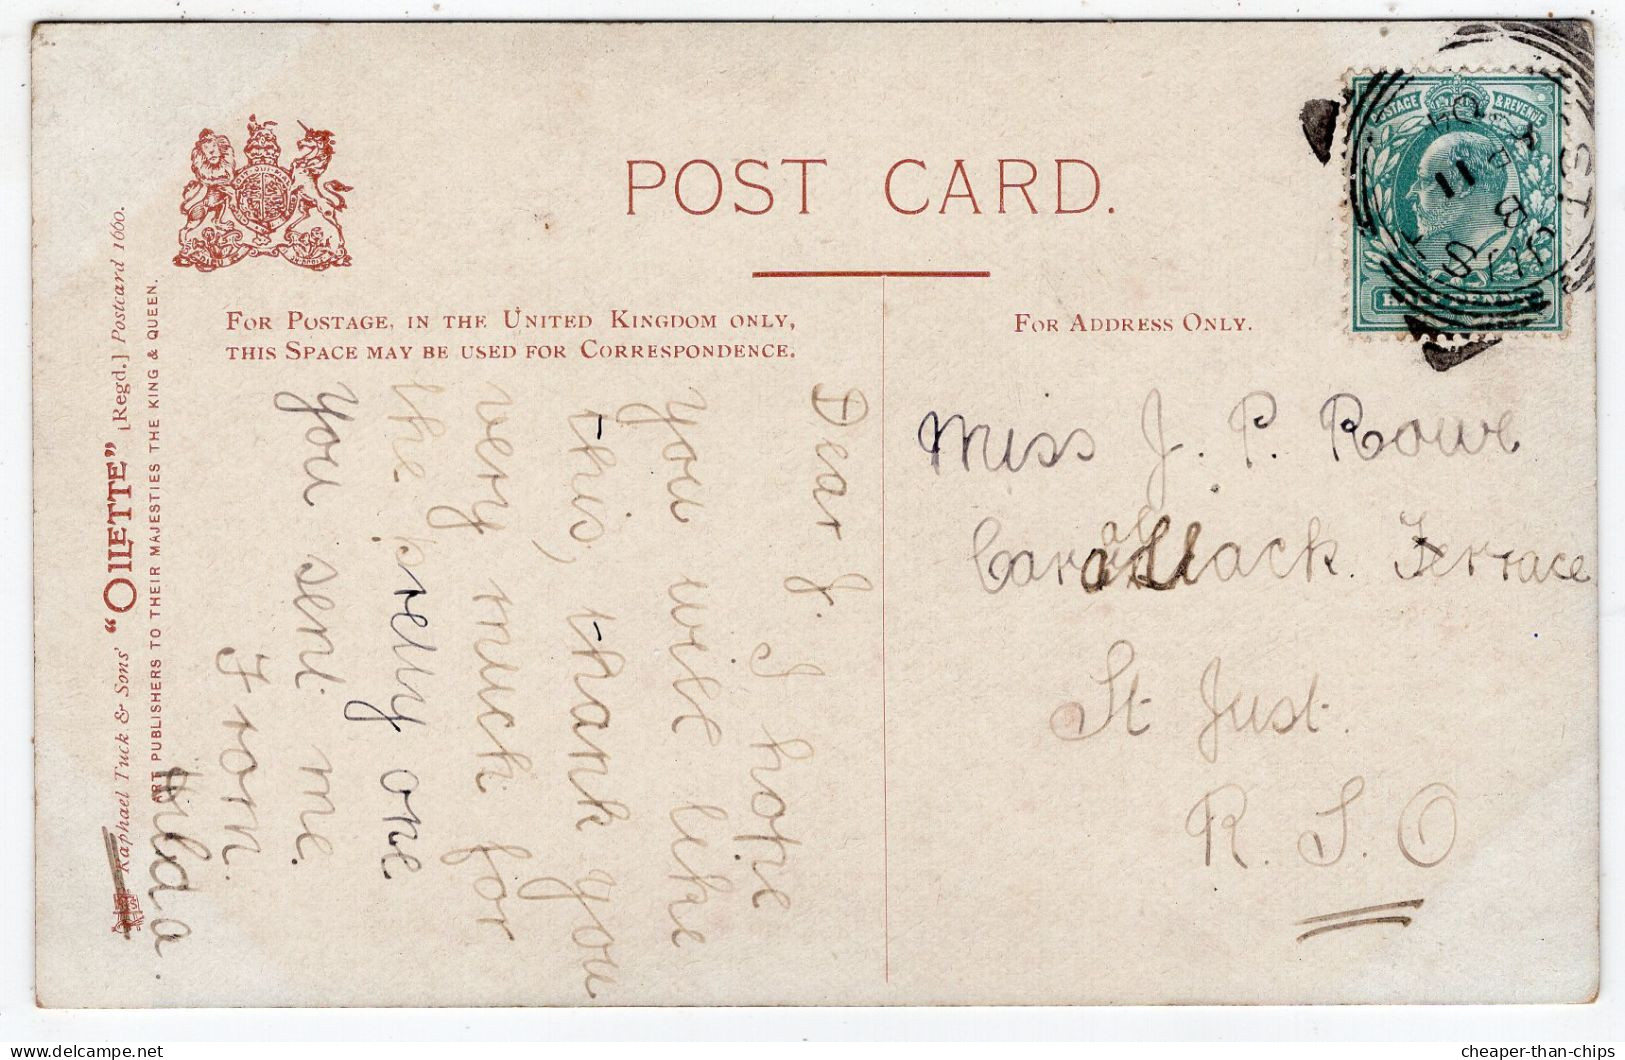 POST CARD.
FOR POSTAGE, IN THE UNITED KINGDOM ONLY,
THIS SPACE MAY BE USED FOR CORRESPONDENCE.
FOR ADDRESS ONLY.
Dear J. I hope
you will like
this, thank you
very much for
the pretty one
you sent me
From
Hilda.
Miss J. P. Rowe
Terrace
St Just.
R. S. O
Raphael Tuck & Sons' "OILETTE" [Regd.] Postcard 1660.
ART PUBLISHERS TO THEIR MAJESTIES THE KING & QUEEN.
POSTAGE & REVENUE
HALFPENNY
ST
JUST
B
11
04
cheaper-than-chips